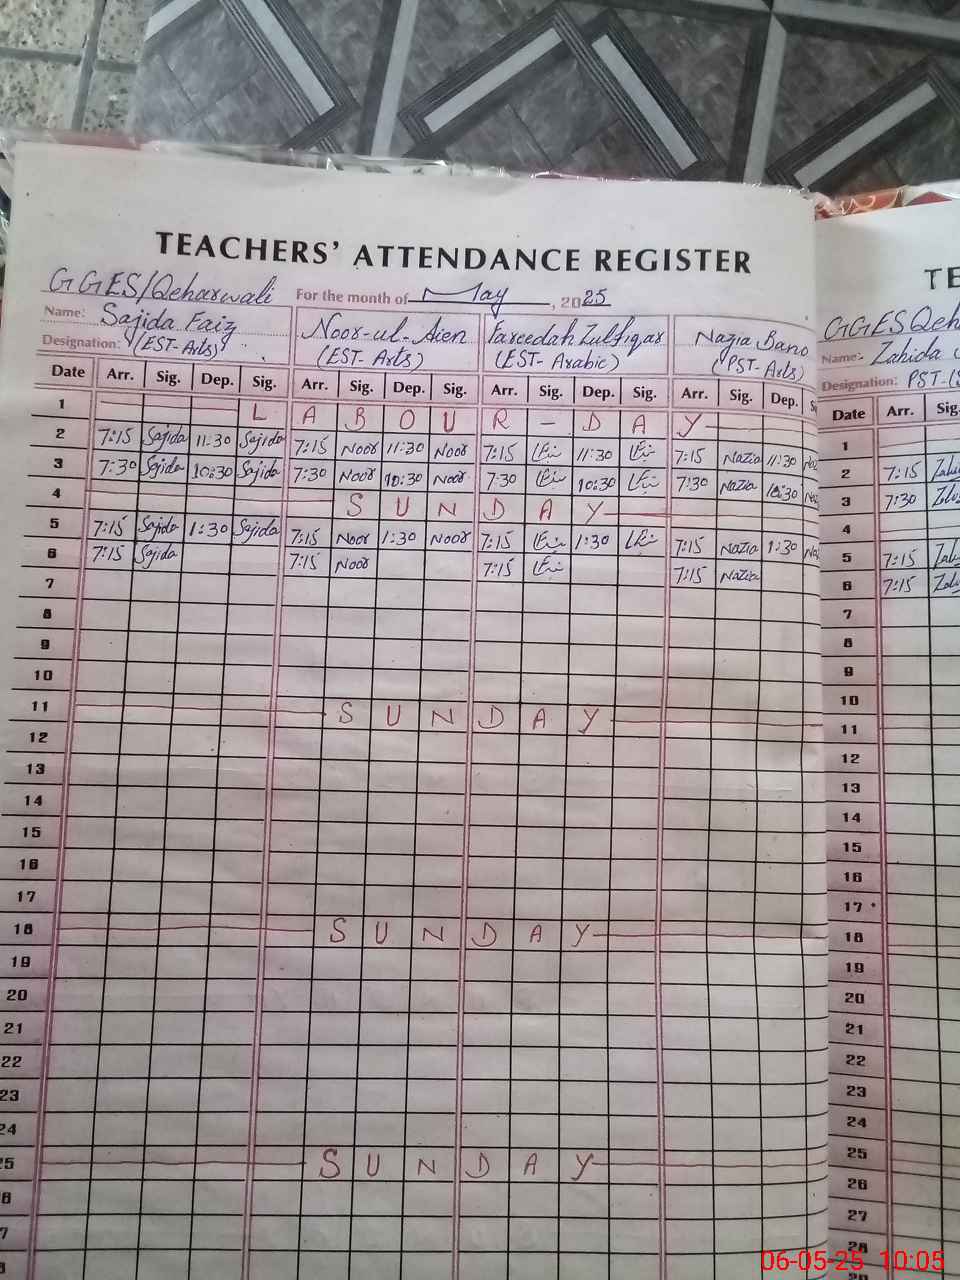 TEACHERS' ATTENDANCE REGISTER
GGES/Qeharwali For the month of May, 2025
Name: Sajida Faiz Noor-ul-Aien Fareedah Zulfiqar Nazia Bano
Designation: (EST-Arts) (EST-Arts) (EST-Arabic) (PST-Arts)
Date Arr. Sig. Dep. Sig. Arr. Sig. Dep. Sig. Arr. Sig. Dep. Sig. Arr. Sig. Dep.
1 LABOUR-DAY
2 7:15 Sajida 11:30 Sajida 7:15 Noor 11:30 Noor 7:15 11:30 7:15 Nazia 11:30
3 7:30 Sajida 10:30 Sajida 7:30 Noor 10:30 Noor 7:30 10:30 7:30 Nazia 10:30
4 SUNDAY
5 7:15 Sajida 1:30 Sajida 7:15 Noor 1:30 Noor 7:15 1:30 7:15 Nazia 1:30
6 7:15 Sajida 7:15 Noor 7:15 7:15 Nazia
7
8
9
10
11 SUNDAY
12
13
14
15
16
17
18 SUNDAY
19
20
21
22
23
24
25 SUNDAY
6
7
TE
GGES Qeh
Name: Zahida
Designation: PST-(S
Date Arr. Sig.
1
2 7:15
3 7:30
4
5 7:15
6 7:15
7
8
9
10
11
12
13
14
15
16
17
18
19
20
21
22
23
24
25
26
27
28
06-05-25 10:05